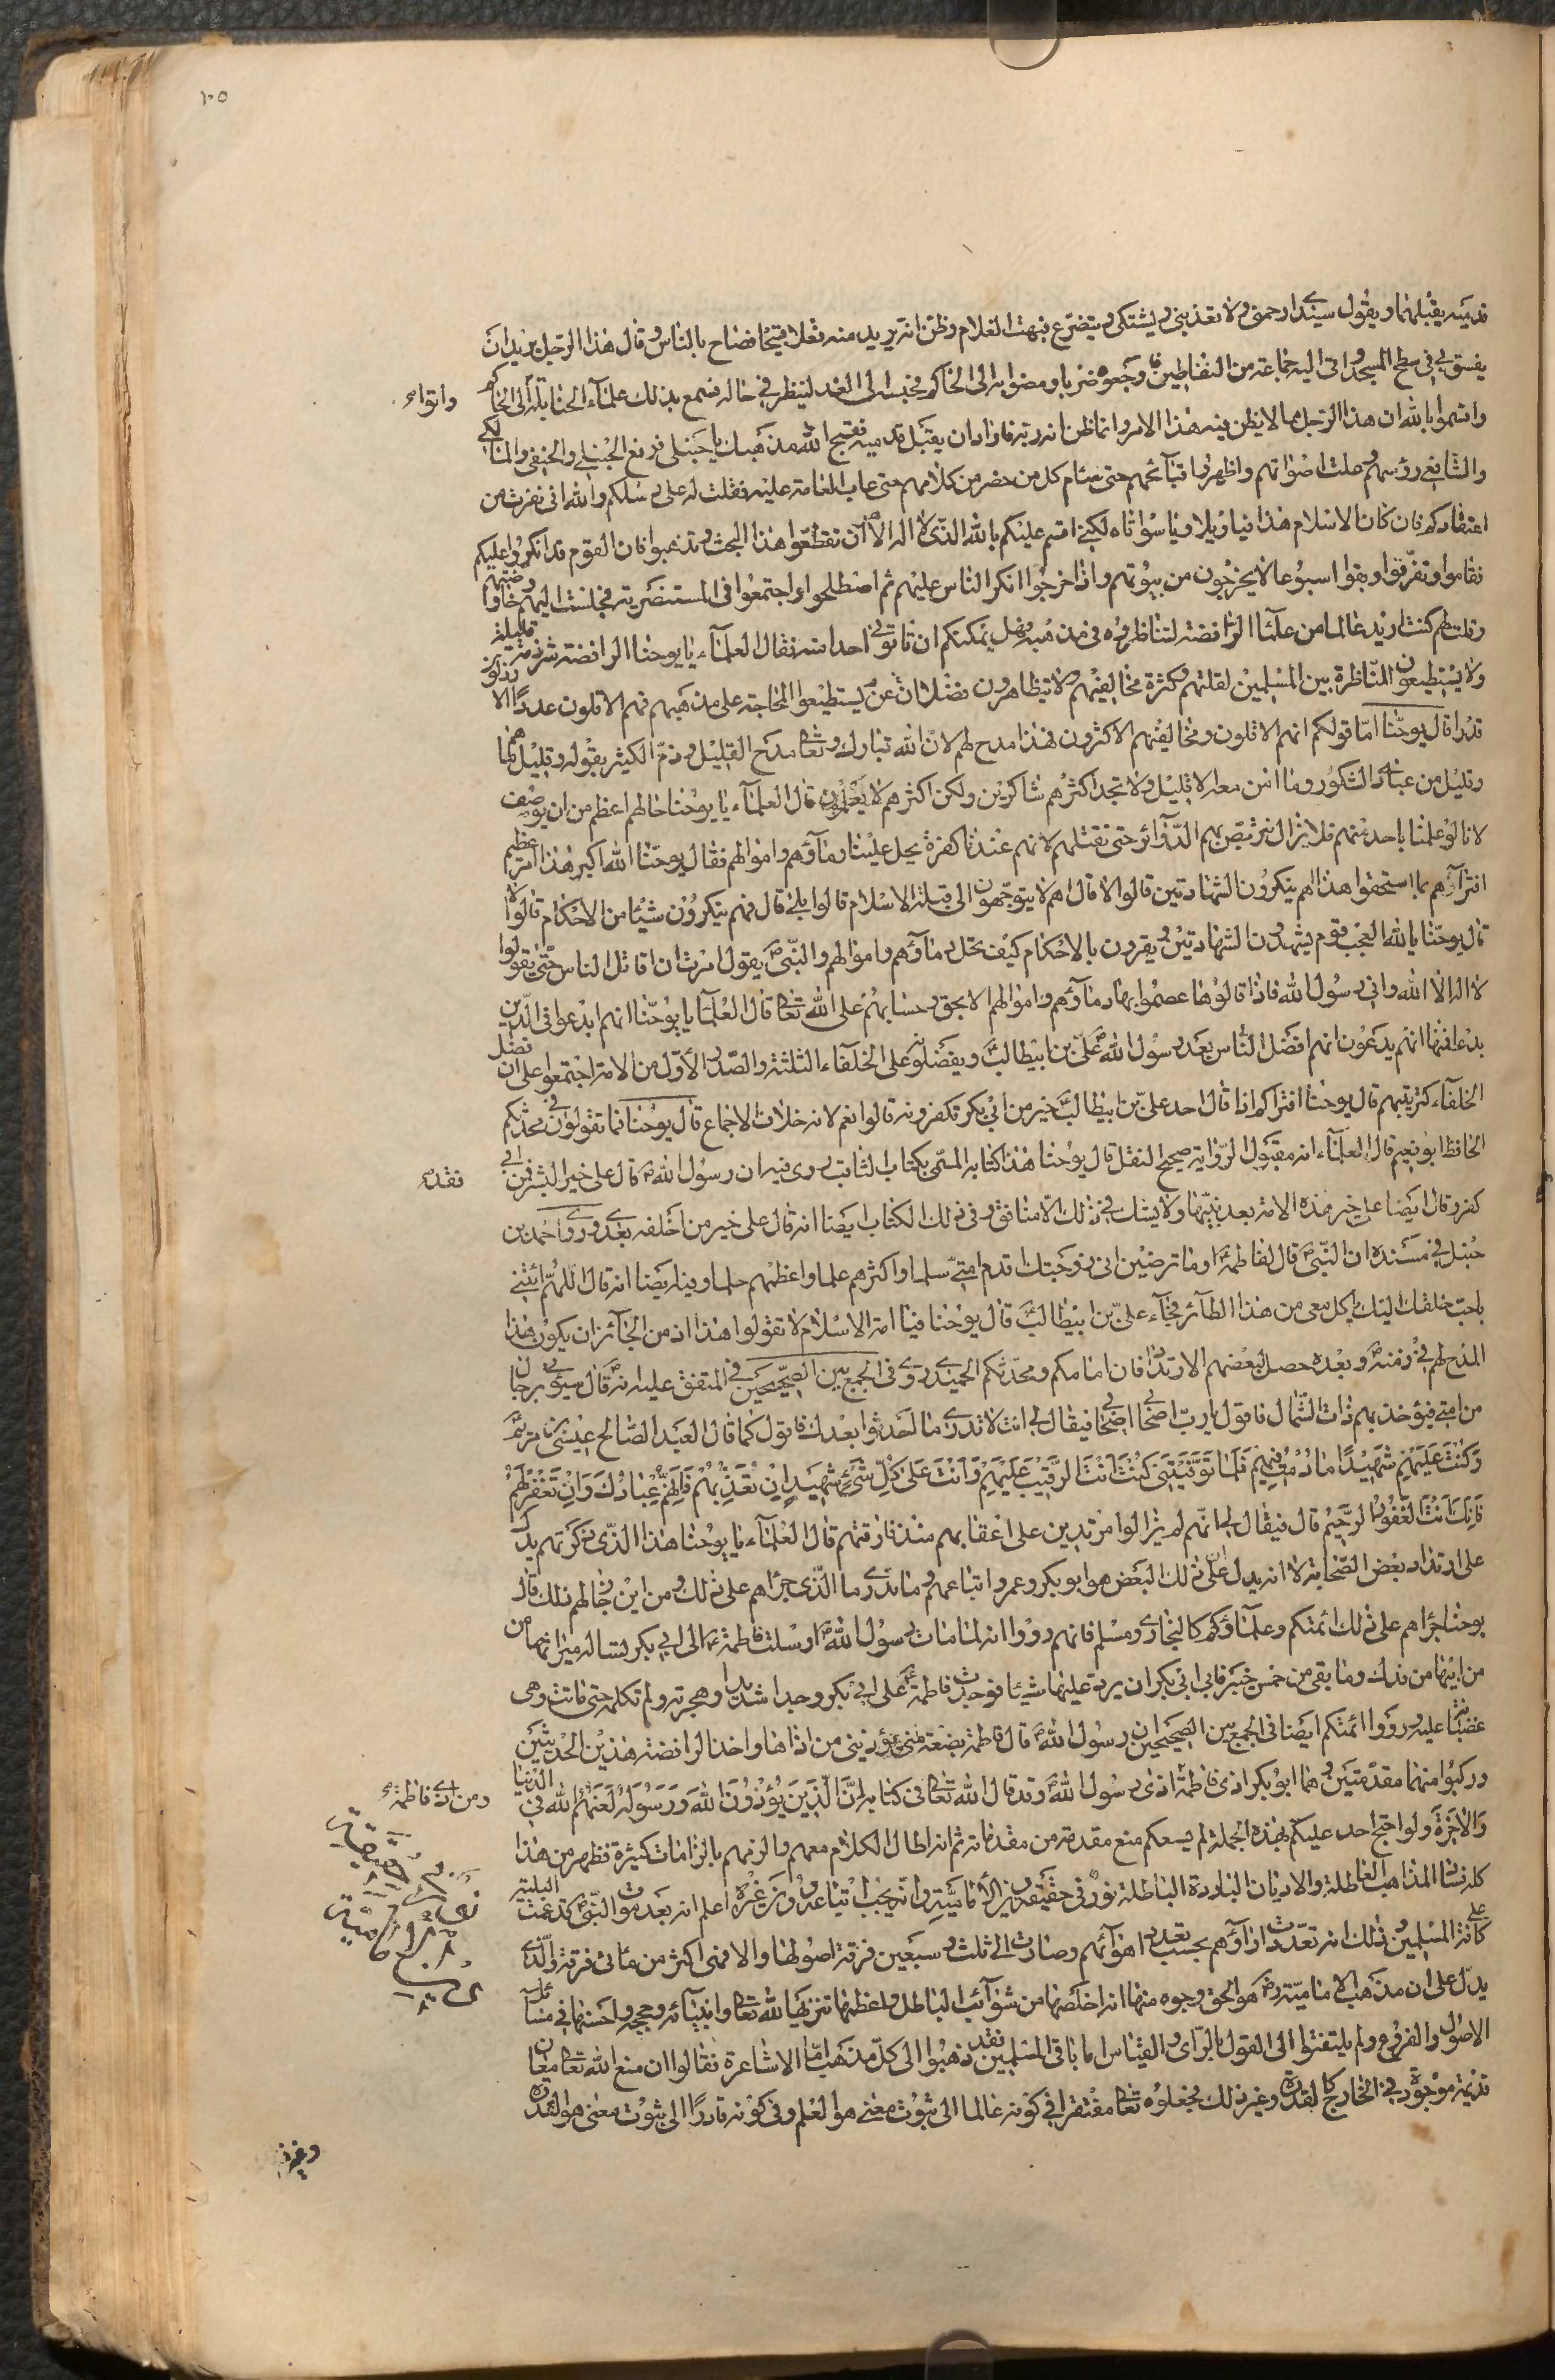 ١٠٥
قدميه يقبلهما ويقول سيدي ارحمني ولا تعذبني ويشتكي ويتضرع فبهت الغلام وظن انه يريد منه فعلا قبيحا فصاح بالناس وقال هذا الرجل يريد ان
يفسق بي في سطح المسجد واتى اليه جماعة من النفاطين وجعوه ضربا ومضوا به الى الحاكم فحبسه الى الغد لينظر في حاله فسمع بذلك علمآء الحنابلة الى الحاكم
واتوا
واقسموا بالله ان هذا الرجل مما لا يظن فيه هذا الامر وانما ظن انه ربه فاراد ان يقبل قدميه فقبح الله مذهبك يا حنبلي فرفع الحنبلي والحنفي والمالكي
والشافعي رؤسهم وعلت اصواتهم واظهروا قبآئحهم حتى سئام كل من حضر من كلامهم حتى عاب العامة عليه فقلت له على رسلكم والله اني نفرت من
اعتقادكم فان كان الاسلام هذا فيا ويلاه ويا سواتاه لكني اقسم عليكم بالله الذي لا اله الا هو ان تقطعوا هذا البحث وتذهبوا فان القوم قد انكروا عليكم
فقاموا وتفرقوا وبقوا اسبوعا لا يخرجون من بيوتهم واذا خرجوا انكر الناس عليهم ثم اصطلحوا واجتمعوا في المستنصرية فجلست اليهم وخاوضتهم
وقلت لهم كنت اريد عالما من علمآء الرافضة لنناظره في مذهبه فهل يمكنكم ان تاتوني احدا منه فقال العلمآء يا يوحنا الرافضة شرذمة قليلة
ولا يستطيعون المناظرة بين المسلمين لقلتهم وكثرة مخالفيهم ولا يتظاهرون فضلا ان يستطيعوا المحاجة على مذهبهم فهم الاقلون عددا الارذلون
قدرا قال يوحنا اما قولكم انهم الاقلون ومخالفيهم الاكثرون فهذا مدح لهم لان الله تبارك وتعالى مدح القليل وذم الكثير بقوله وقليل ما هم
وقليل من عبادي الشكور وما امن معه الا قليل ولا تجد اكثرهم شاكرين ولكن اكثرهم لا يعلمون قال العلمآء يا يوحنا حالهم اعظم من ان يوصف
لانا لو علمنا باحد منهم فلا نزال نتربص بهم الدوآئر حتى نقتلهم لانهم عندنا كفرة يحل علينا دمآؤهم واموالهم فقال يوحنا الله اكبر هذا امر عظيم
اتراهم بما استحقوا هذا اهم ينكرون الشهادتين قالوا لا قال اهم لا يتوجهون الى قبلة الاسلام قالوا بلى قال فهم ينكرون شيئا من الاحكام قالوا لا
قال يوحنا يا لله العجب قوم يشهدون الشهادتين ويقرون بالاحكام كيف تحل دمآؤهم واموالهم والنبي يقول امرت ان اقاتل الناس حتى يقولوا
لا اله الا الله واني رسول الله فاذا قالوها عصموا بها دمآؤهم واموالهم الا بحق وحسابهم على الله تعالى قال العلمآء يا يوحنا انهم ابدعوا في الدين
بدعا فمنها انهم يدعون انهم افضل الناس بعد رسول الله علي بن ابيطالب ويفضلونه على الخلفآء الثلثة والصدر الاول من الامة اجتمعوا على ان فضل
الخلفآء كترتيبهم قال يوحنا افتراكم اذا قال احد علي بن ابيطالب خير من ابي بكر تكفرونه قالوا نعم لانه خلاف الاجماع قال يوحنا فما تقولون في محدثكم
الحافظ ابو نعيم قال العلمآء انه مقبول الرواية صحيح النقل قال يوحنا هذا كتابه المسمى بكتاب الثاقب روى فيه ان رسول الله قال علي خير البشر فمن ابى
فقد
كفر وقال ايضا علي خير هذه الامة بعد نبيها ولا يشك في ذلك الا منافق وفي ذلك الكتاب ايضا انه قال علي خير من اخلفه بعدي وروى احمد بن
حنبل في مسنده ان النبي قال لفاطمة اوما ترضين اني زوجتك اقدم امتي سلما واكثرهم علما واعظمهم حلما وفيه ايضا انه قال اللهم ائتني
باحب خلقك اليك ياكل معي من هذا الطآئر فجآء علي بن ابيطالب قال يوحنا فيا امة الاسلام لا تقولوا هذا اذ من الجآئز ان يكون هذا
المدح لهم في زمنه وبعده حصل لبعضهم الارتداد فان امامكم ومحدثكم الحميدي روى في الجمع بين الصحيحين في المتفق عليه انه قال سيؤتى برجال
من امتي فيؤخذ بهم ذات الشمال فاقول يا رب اصحابي اصحابي فيقال لي انك لا تدري ما احدثوا بعدك فاقول كما قال العبد الصالح عيسى بن مريم
وكنت عليهم شهيدا ما دمت فيهم فلما توفيتني كنت انت الرقيب عليهم وانت على كل شيء شهيد ان تعذبهم فانهم عبادك وان تغفر لهم
فانك انت الغفور الرحيم قال فيقال لي انهم لم يزالوا مرتدين على اعقابهم منذ فارقتهم قال العلمآء يا يوحنا هذا الذي ذكرتهم يدل
على ارتداد بعض الصحابة لا انه يدل على ان ذلك البعض هو ابو بكر وعمر واتباعهم وما ندري ما الذي جرأهم على ذلك ومن اين جا لهم ذلك قال
يوحنا جرأهم على ذلك ائمتكم وعلمآؤكم كالبخاري ومسلم فانهم رووا انه لما مات رسول الله ارسلت فاطمة الى ابي بكر تساله ميراثها من
من ابيها من فدك وما بقي من خمس خيبر فابى ابي بكر ان يرد عليها شيئا فوجدت فاطمة على ابي بكر وجدا شديدا وهجرته ولم تكلمه حتى ماتت وهي
غضبانة عليه ورووا ائمتكم ايضا في الجمع بين الصحيحين ان رسول الله قال فاطمة بضعة مني يؤذيني من اذاها واخذ الرافضة هذين الحديثين
وركبوا منهما مقدمتين وهما ابو بكر اذى فاطمة اذى رسول الله وقد قال الله تعالى في كتابه ان الذين يؤذون الله ورسوله لعنهم الله في الدنيا
ومن اذى فاطمة
والاخرة ولو احتج احد عليكم بهذه الجملة لم يسعكم منع مقدمة من مقدماته ثم انه اطال الكلام معهم والزمهم بالزامات كثيرة فظهر من هذا
كله فساد المذاهب الباطلة والاديان الباردة الباطلة نور في حقيقة دين الامامية وانه يجب اتباعه دون غيره اعلم انه بعد موت النبي قد عمت البلية
على كافة المسلمين وذلك انه تعددت ارآؤهم بحسب تعدد اهوآئهم وصارت الى ثلث وسبعين فرقة اصولها والا فهي اكثر من مائتى فرقة والذي
يدل على ان مذهب الامامية هو الحق وجوه منها انه اخلصها من شوآئب الباطل واعظمها تنزيها لله تعالى وانبيآئه وحججه واحسنها في مسآئل
الاصول والفروع ولم يلتفتوا الى القول بالراي والقياس اما باقي المسلمين فقد ذهبوا الى كل مذهب اما الاشاعرة فقالوا ان مع الله تعالى معان
قديمة موجودة في الخارج كالقدرة وغير ذلك فجعلوه تعالى مفتقرا في كونه عالما الى ثبوت معنى هو العلم وفي كونه قادرا الى ثبوت معنى هو القدرة
وغير